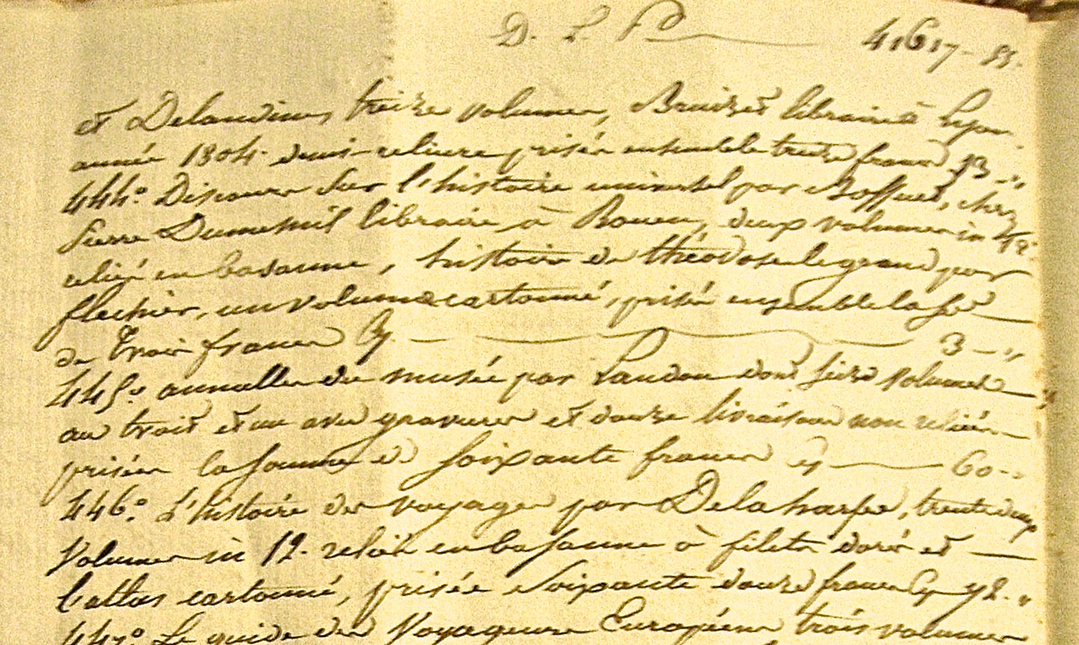 D. L. P 41617 - 85.
et Delandine, treize volumes, Bruizet libraire à Lyon
année 1804. demi-reliure prisés ensemble treize francs 13 - "
444.° Discours sur l'histoire universel par Bossuet, chez
Pierre Dumesnil libraire à Rouen, deux volumes in 12.
relié en basanne, histoire de théodose le grand par
flechier, un volume cartonné, prisés ensemble la Se
de trois francs Cy. — 3 - "
445.° annalles du musée par Landon dont seize volumes
au trait et un avec gravures et douze livraisons non reliées
prisées la somme de soixante francs cy — 60 - "
446.° L'histoire des voyages par Delaharpe, trente deux
volumes in 12. relié en basanne à filets dorés et —
l'atlas cartonné, prisée soixante douze francs Cy 72. "
447.° Le guide des Voyageurs Européens, trois volumes